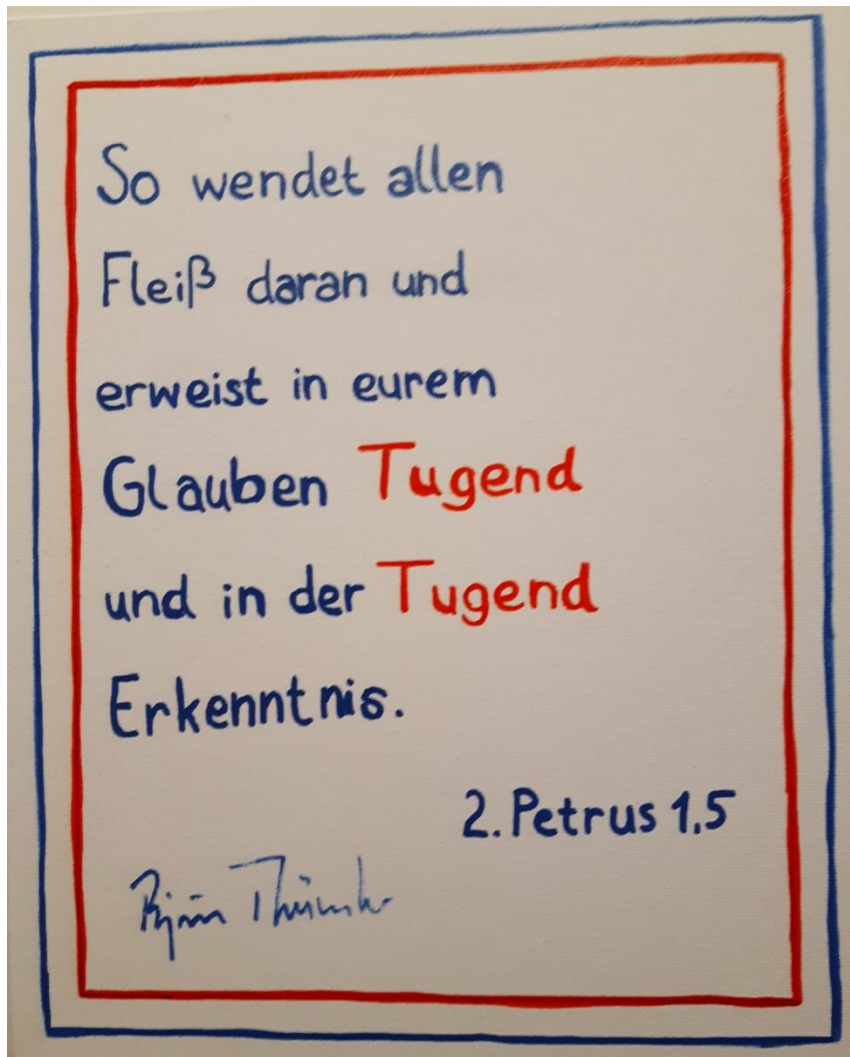 So wendet allen
Fleiß daran und
erweist in eurem
Glauben Tugend
und in der Tugend
Erkenntnis.
2. Petrus 1,5